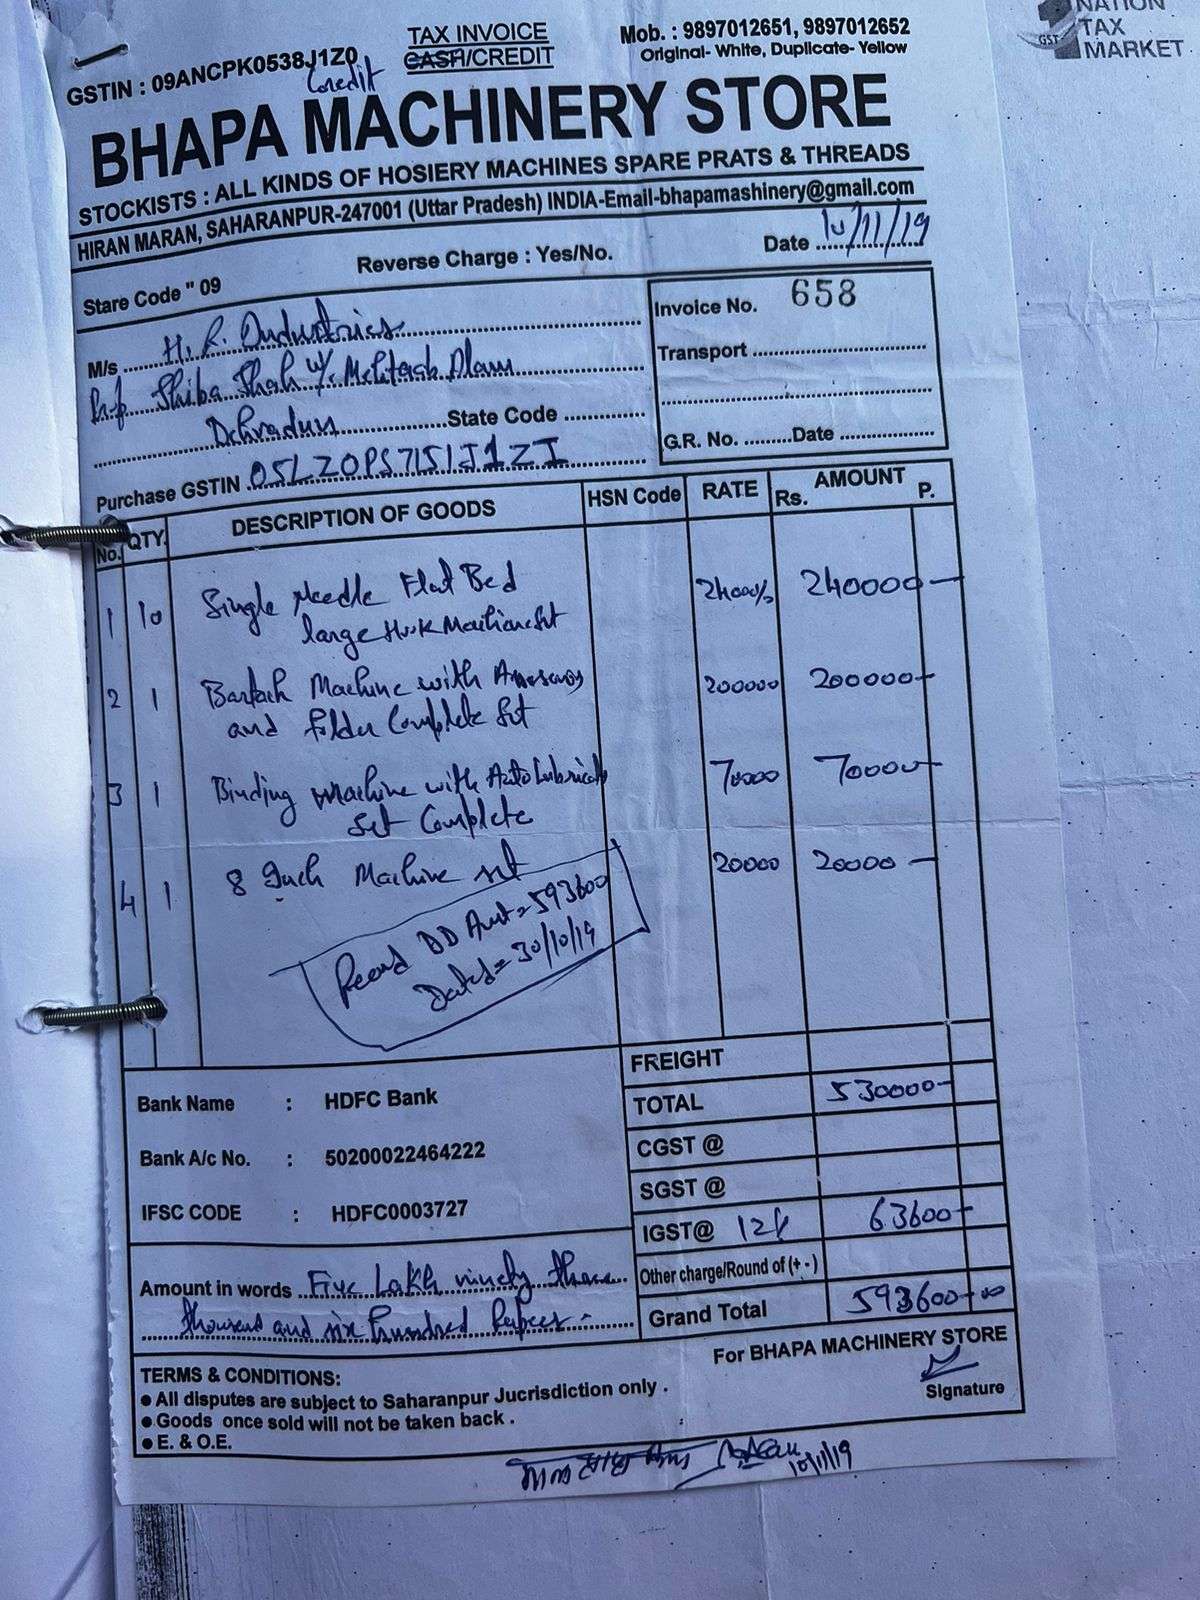 NATION
TAX
MARKET
GST
GSTIN : 09ANCPK0538J1Z0
TAX INVOICE
CASH/CREDIT
Credit
Mob. : 9897012651, 9897012652
Original- White, Duplicate- Yellow
BHAPA MACHINERY STORE
STOCKISTS : ALL KINDS OF HOSIERY MACHINES SPARE PRATS & THREADS
HIRAN MARAN, SAHARANPUR-247001 (Uttar Pradesh) INDIA-Email-bhapamashinery@gmail.com
Stare Code " 09
Reverse Charge : Yes/No.
Date 10/11/19
M/s H. R. Industries
Shiba Shah W/o Mehtab Alam
Dehradun State Code
Purchase GSTIN 05LZOPS7151J1ZI
Invoice No. 658
Transport
G.R. No. Date
No. QTY. DESCRIPTION OF GOODS HSN Code RATE AMOUNT
Rs. P.
1 10 Single Needle Flat Bed 24000/- 240000-
large Hook Machine Set
2 1 Bartack Machine with 200000 200000-
and folder Complete Set
3 1 Binding Machine with Auto Lubricate 70000 70000-
Set Complete
4 1 8 Inch Machine set 20000 20000-
DD Amt = 593600
Dated = 30/10/19
FREIGHT
Bank Name : HDFC Bank
TOTAL 530000-
CGST @
Bank A/c No. : 50200022464222
SGST @
IFSC CODE : HDFC0003727
IGST@ 12% 63600-
Other charge/Round of (+ -)
Amount in words Five Lakh ninety three
thousand and six hundred Rupees -
Grand Total 593600-00
For BHAPA MACHINERY STORE
Signature
TERMS & CONDITIONS:
● All disputes are subject to Saharanpur Jucrisdiction only .
● Goods once sold will not be taken back .
● E. & O.E.
10/11/19